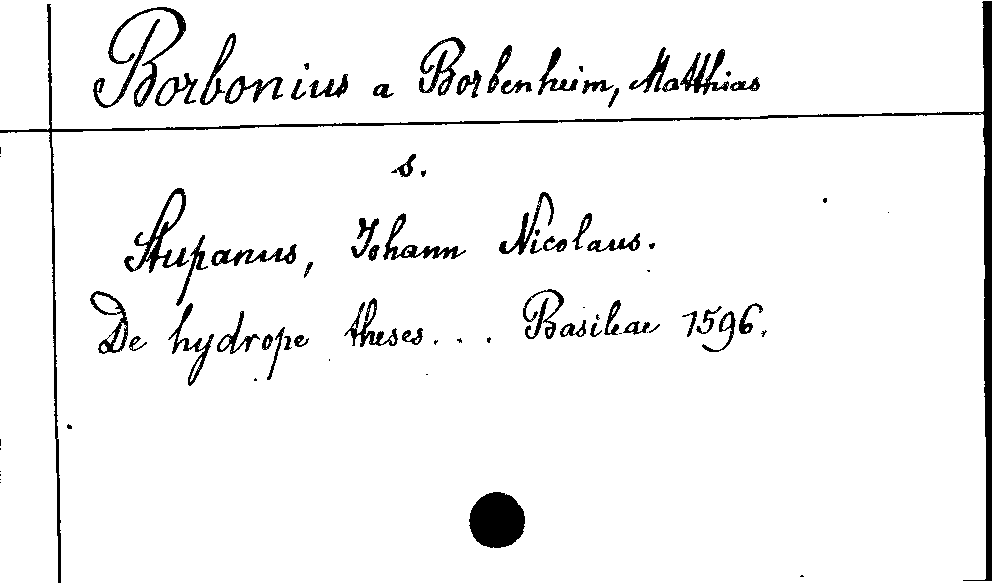 Borbonius a Borbenheim, Matthias
s.
Stupanus, Johann Nicolaus.
De hydrope theses... Basileae 1596.